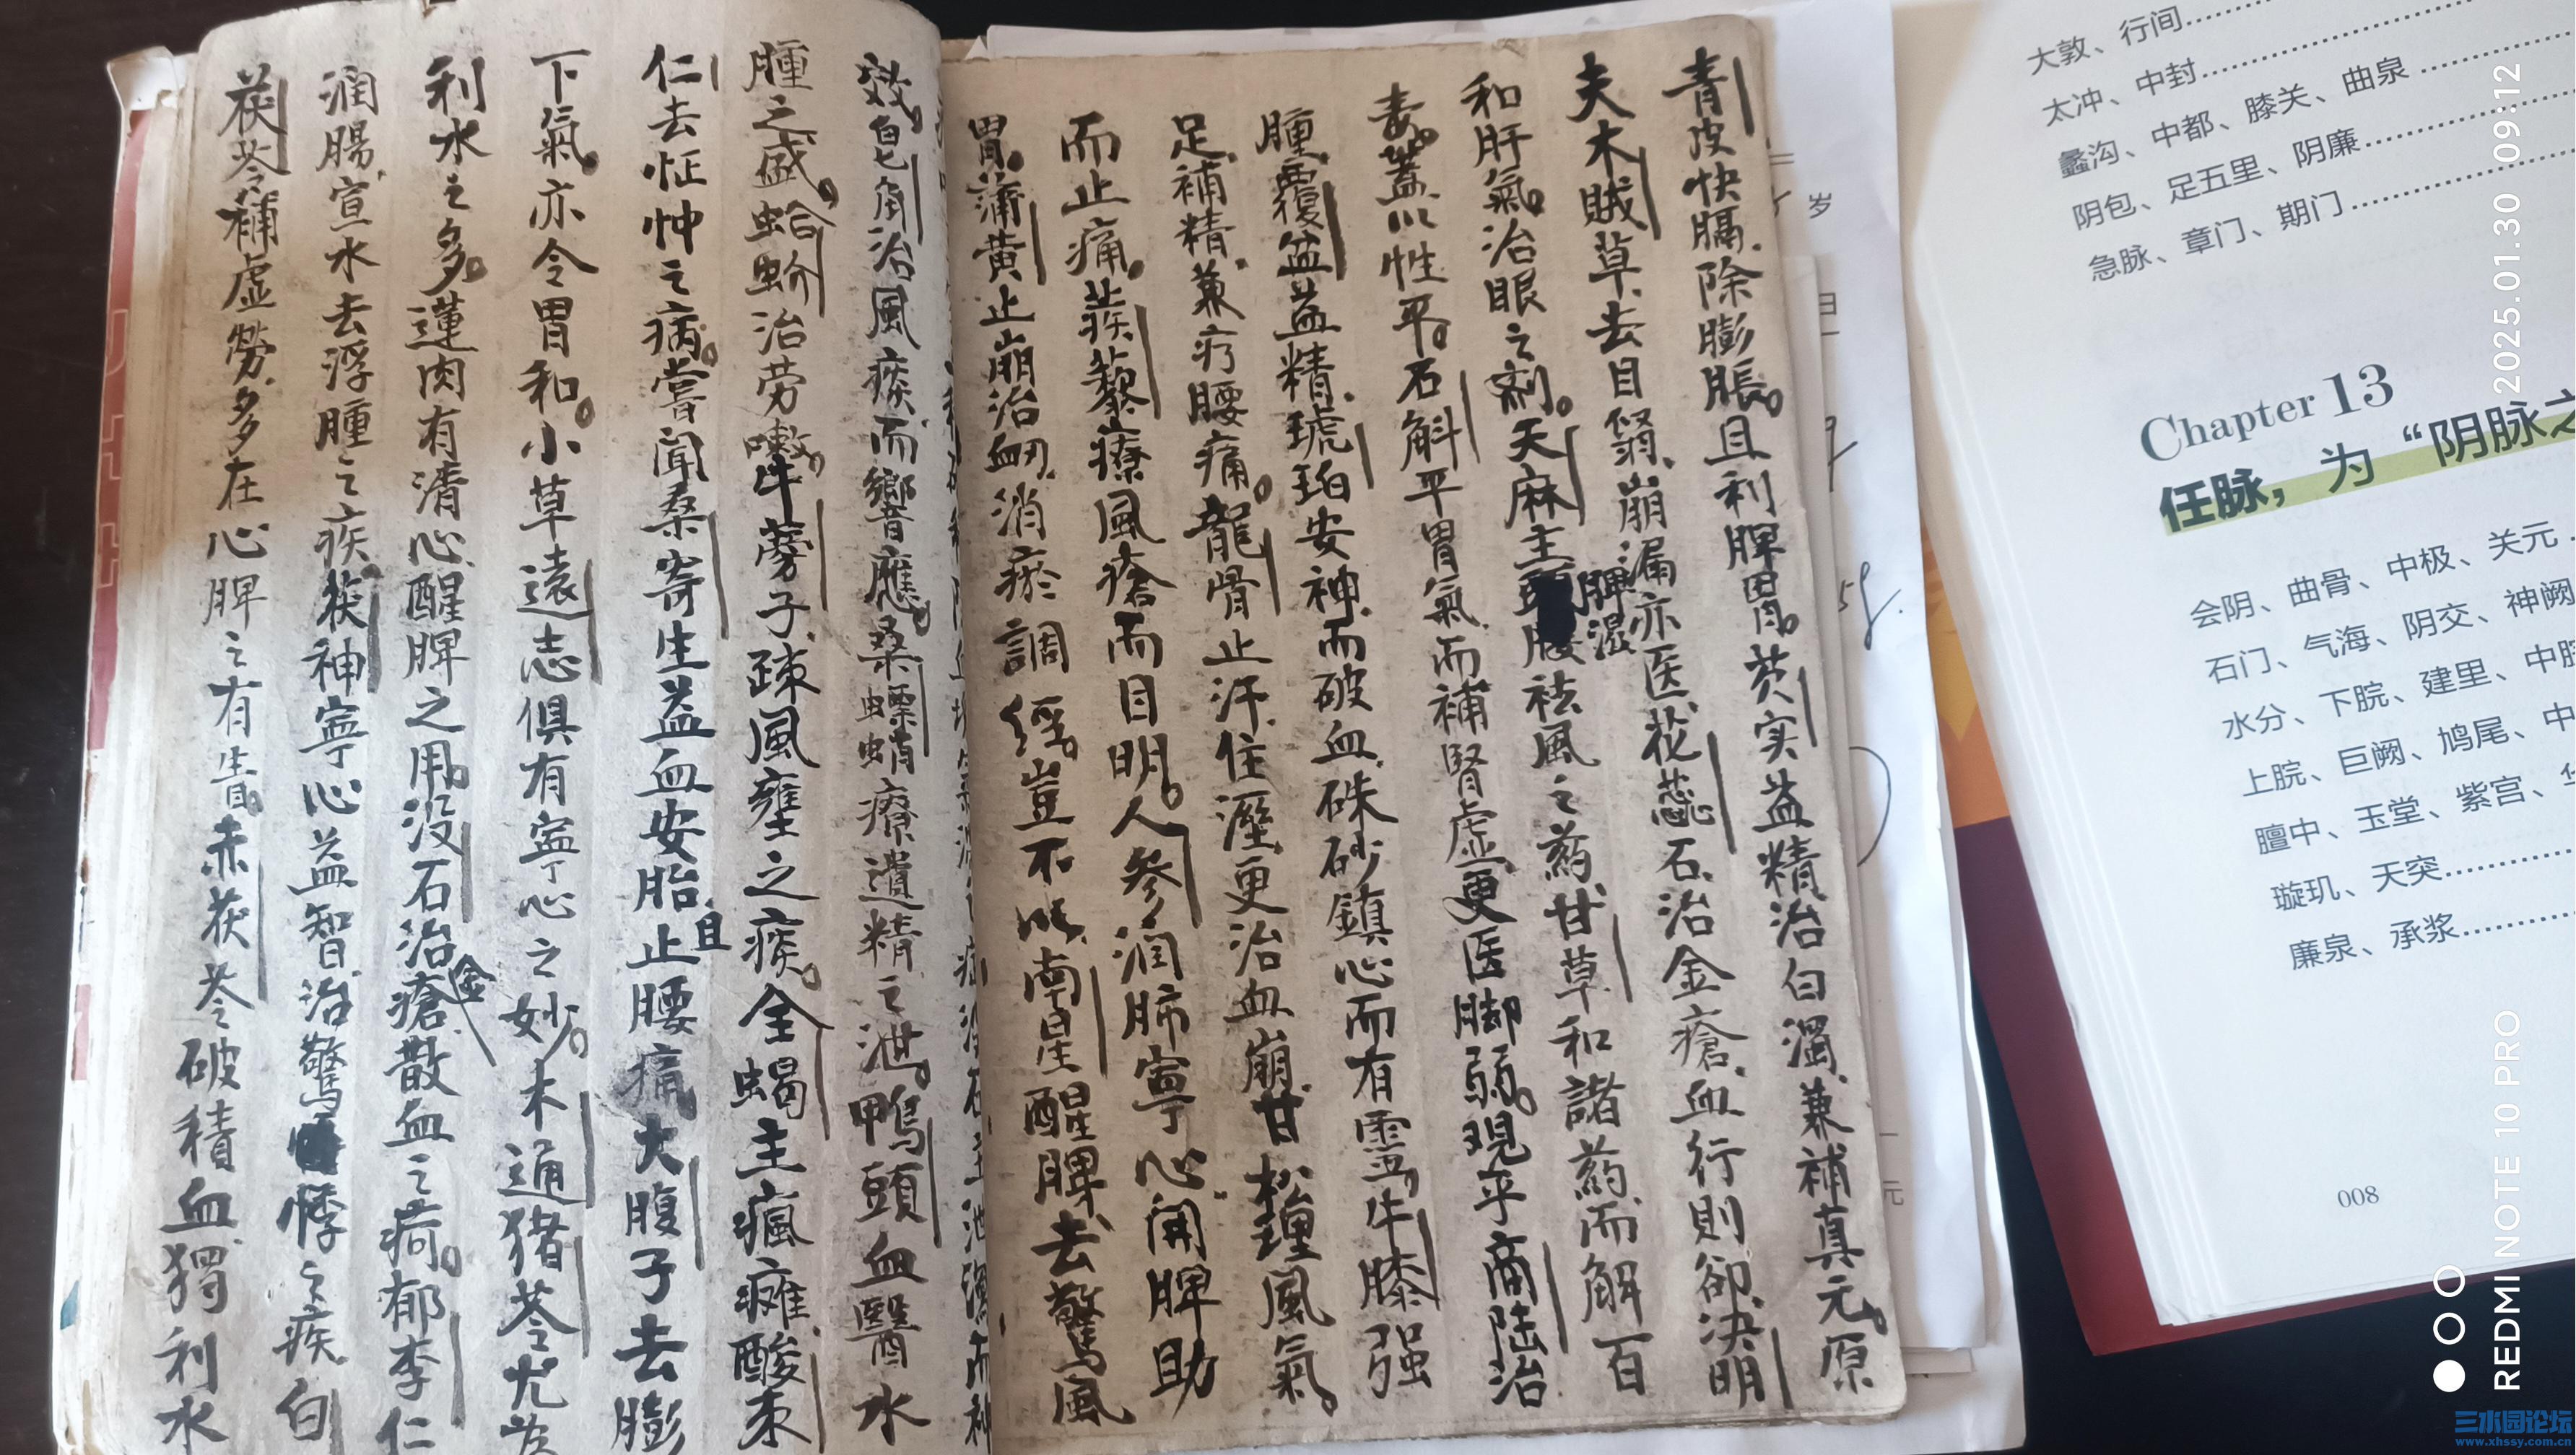 青皮快膈除膨脹且利脾胃芡实益精治白濁兼補真元原
夫木賊草去目翳崩漏亦医花蕊石治金瘡血行則卻决明
和肝氣治眼之剂天麻主脾湿祛風之药甘草和諸药而解百
毒蓋以性平石斛平胃氣而補腎虛更医脚弱观乎商陆治
腫覆盆益精琥珀安神而破血硃砂鎮心而有霊牛膝强
足補精兼疗腰痛龍骨止汗住溼更治血崩甘松理風氣
而止痛蒺藜療風瘡而目明人參润肺寧心開脾助
胃蒲黄止崩治衂消瘀調經豈不以南星醒脾去驚風
效皂角治風痰而響應桑螵蛸療遺精之泄鴨頭血醫水
腫之盛蛤蚧治劳嗽牛蒡子疎風壅之痰全蝎主瘋癱酸枣
仁去怔忡之病嘗聞桑寄生益血安胎且止腰痛大腹子去膨
下氣亦令胃和小草遠志俱有寧心之妙木通猪苓尤為
利水之多蓮肉有清心醒脾之用没石治金瘡散血之疴郁李仁
润腸宣水去浮腫之疾茯神寧心益智治驚悸之疾白
茯苓補虛勞多在心脾之有眚赤茯苓破積血獨利水
大敦、行间
太冲、中封
蠡沟、中都、膝关、曲泉
阴包、足五里、阴廉
急脉、章门、期门
Chapter 13
任脉，为“阴脉之
会阴、曲骨、中极、关元
石门、气海、阴交、神阙
水分、下脘、建里、中脘
上脘、巨阙、鸠尾、中
膻中、玉堂、紫宫、华
璇玑、天突
廉泉、承浆
008
岁
元
2025.01.30 09:12
REDMI NOTE 10 PRO
三水园论坛
www.xhssy.com.cn